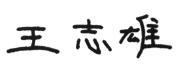 王志雄